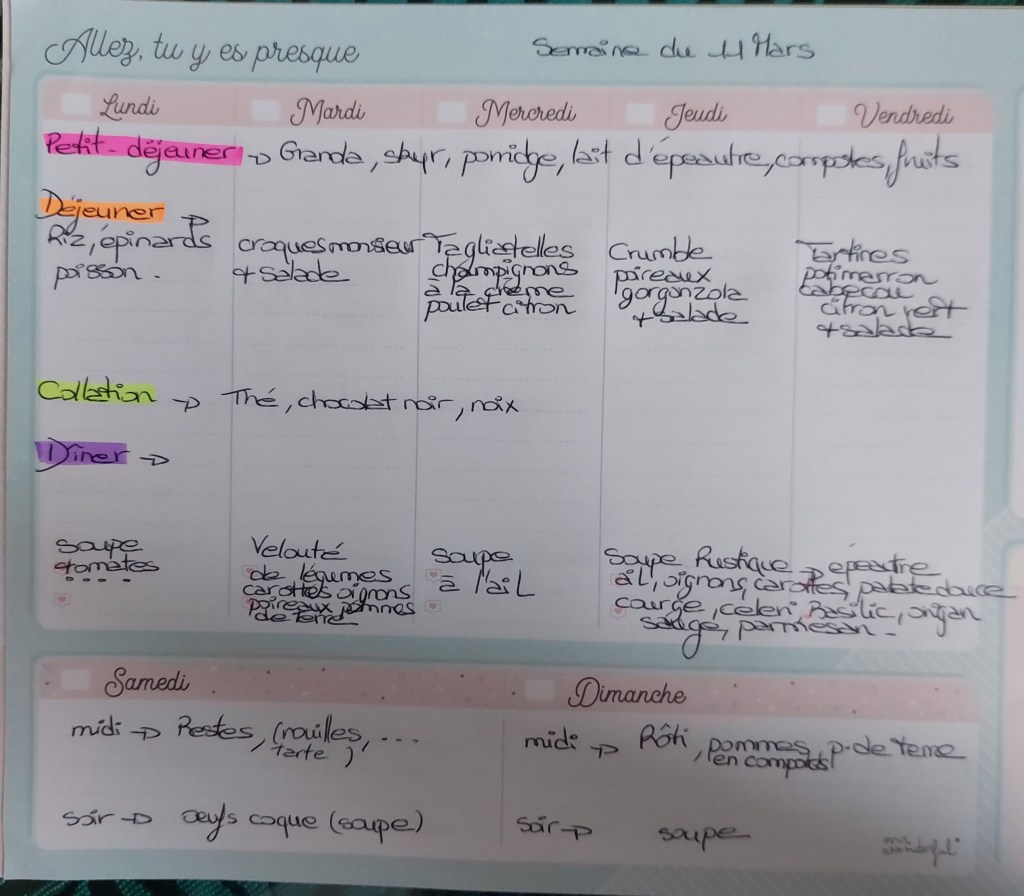 Allez, tu y es presque
Semaine du 11 Mars
Lundi Mardi Mercredi Jeudi Vendredi
Petit-déjeuner → Granola, skyr, porridge, lait d'épeautre, compotes, fruits
Déjeuner →
Riz, épinards
poisson.
croquesmonsieur
+ salade
Tagliatelles
champignons
à la crème
poulet citron
Crumble
poireaux
gorgonzola
+ salade
Tartines
potimarron
cabecou
citron vert
+ salade
Collation → Thé, chocolat noir, noix
Dîner →
soupe
tomates
Velouté
de légumes
carottes oignons
poireaux pommes
de terre
soupe
à l'ail
Soupe Rustique → épeautre
ail, oignons, carottes, patate douce
courge, celeri, Basilic, origan
sauge, parmesan.
Samedi
midi → Restes, (nouilles, ...
tarte )
soir → œufs coque (soupe)
Dimanche
midi → Rôti, pommes, p. de terre
en compotes
soir → soupe
mr. wonderful*